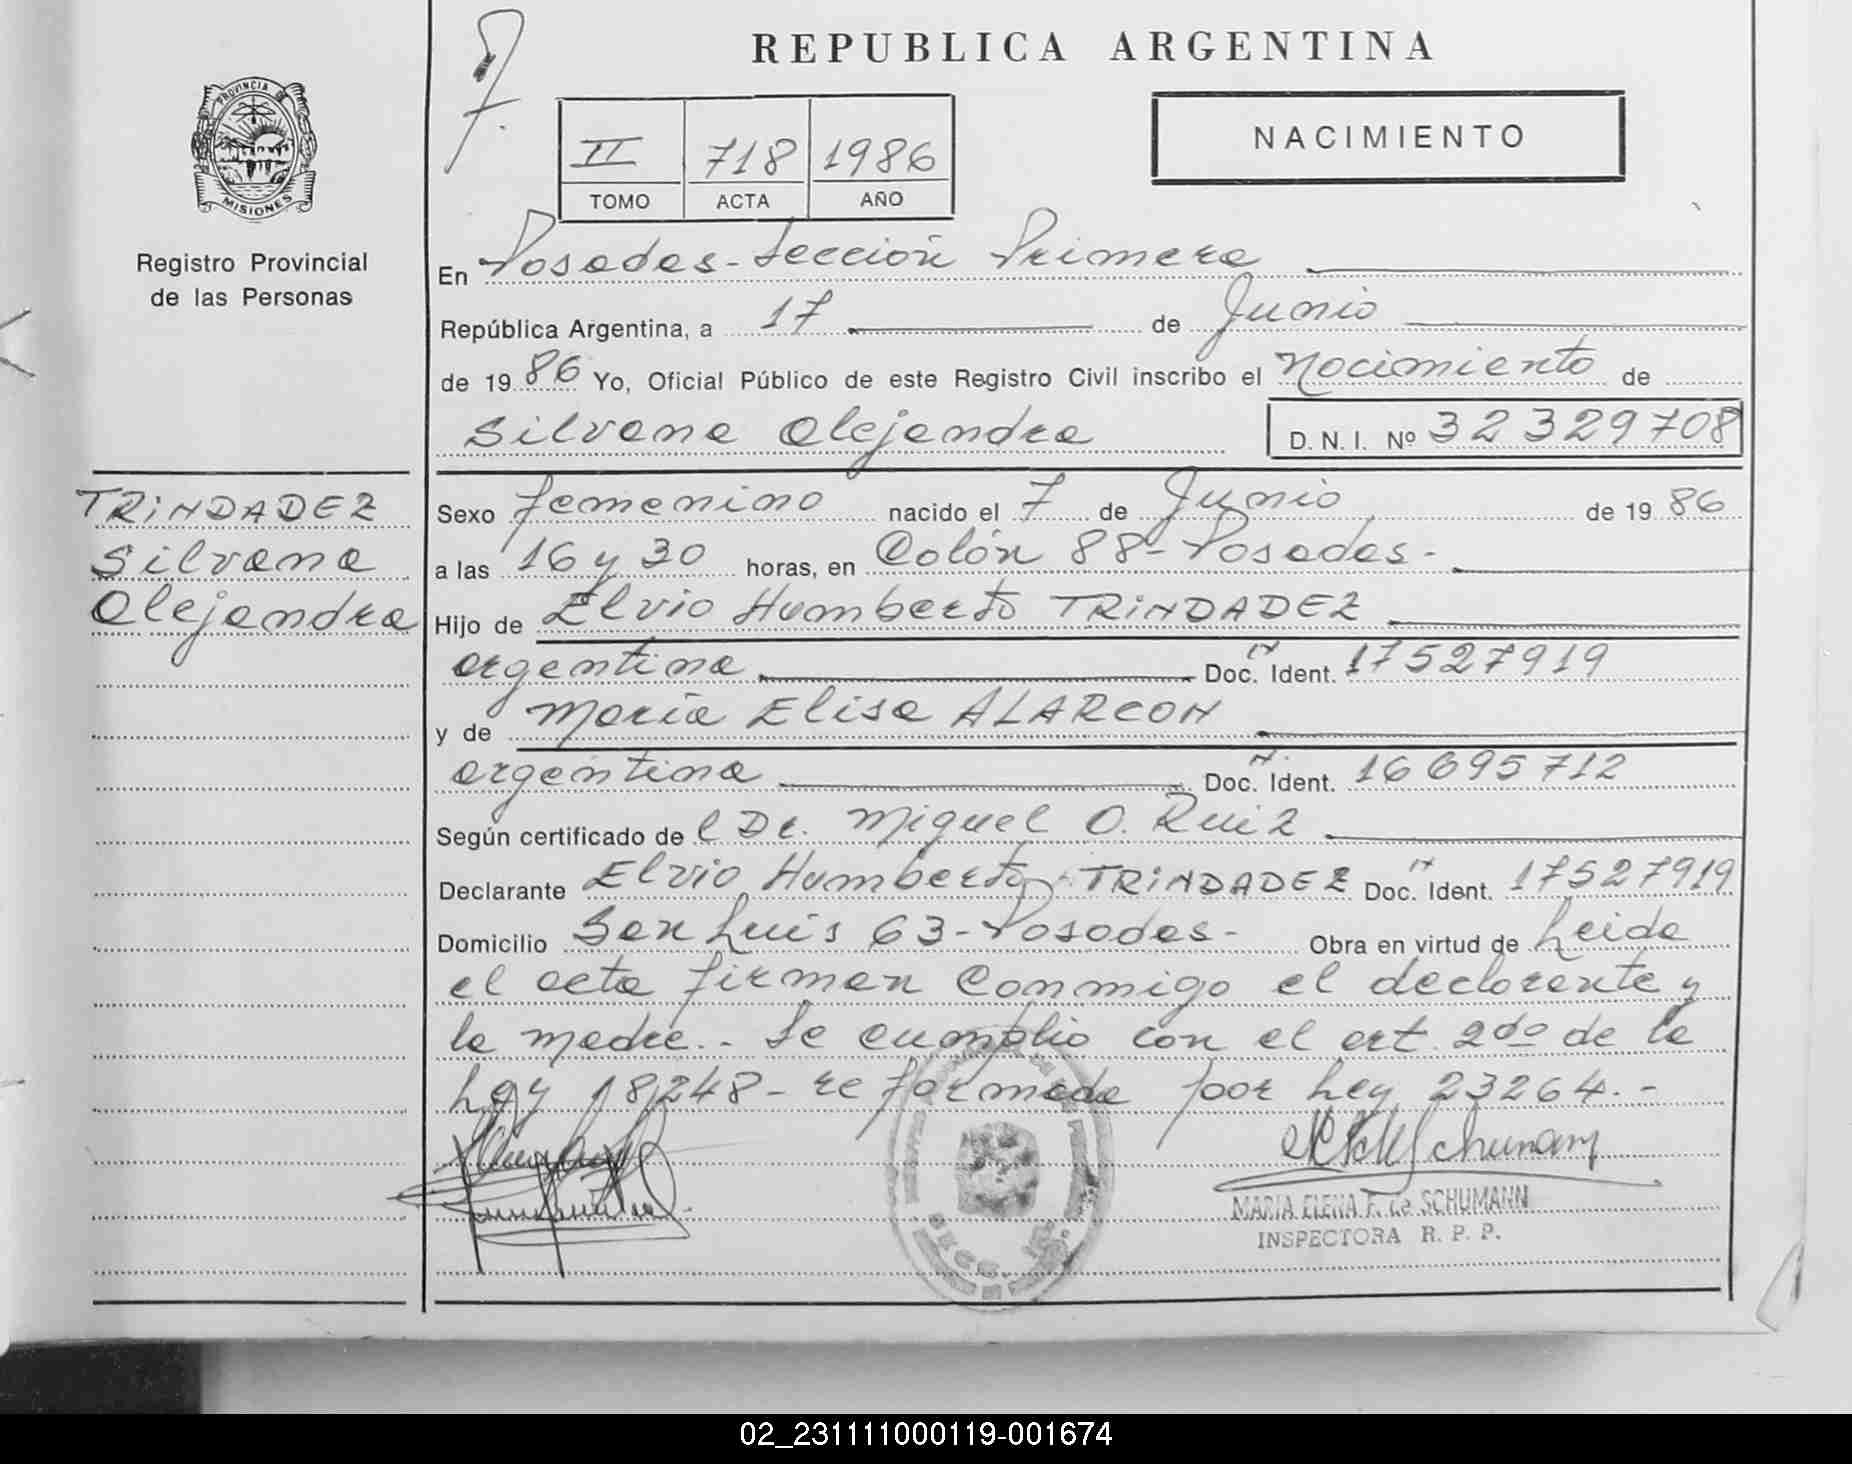 REPUBLICA ARGENTINA
PROVINCIA DE
MISIONES
Registro Provincial
de las Personas
II 718 1986
TOMO ACTA AÑO
NACIMIENTO
En Posadas - Sección Primera
República Argentina, a 17 de Junio
de 1986 Yo, Oficial Público de este Registro Civil inscribo el Nacimiento de
Silvana Alejandra D. N. I. Nº 32329708
TRINDADEZ
Silvana
Alejandra
Sexo femenino nacido el 7 de Junio de 1986
a las 16 y 30 horas, en Colón 88 - Posadas -
Hijo de Elvio Humberto TRINDADEZ
argentina Doc. Ident. 17527919
y de María Elisa ALARCON
argentina Doc. Ident. 16695712
Según certificado del Dr. Miguel O. Ruiz
Declarante Elvio Humberto TRINDADEZ Doc. Ident. 17527919
Domicilio San Luis 63 - Posadas - Obra en virtud de Leida
el acta firman conmigo el declarante y
la madre.. Se cumplio con el art. 2do de la
Ley 18248 - reformada por Ley 23264. -
MARIA ELENA F. de SCHUMANN
INSPECTORA R. P. P.
02_231111000119-001674